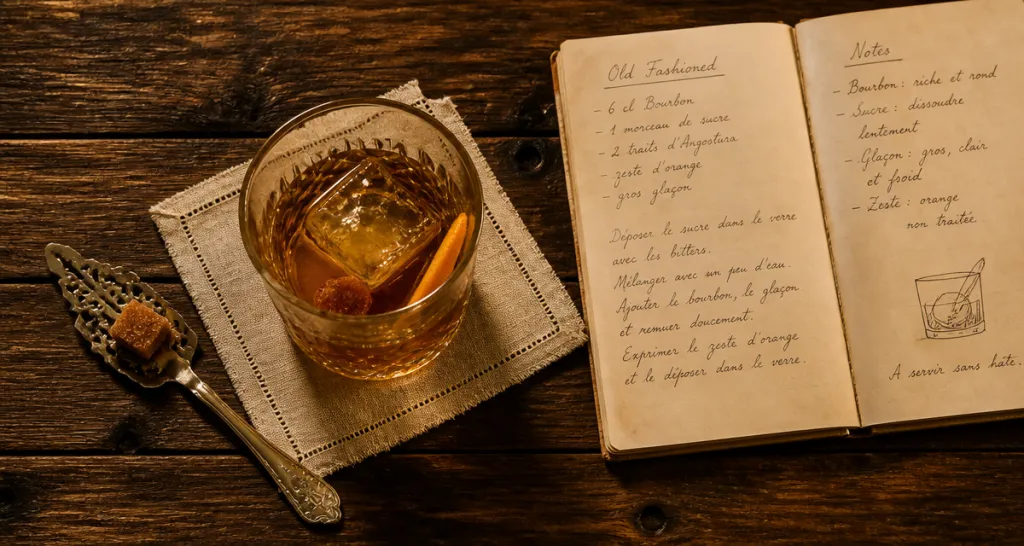 Old Fashioned
- 6 cl Bourbon
- 1 morceau de sucre
- 2 traits d'Angostura
- zeste d'orange
- gros glaçon
Déposer le sucre dans le verre
avec les bitters.
Mélanger avec un peu d'eau.
Ajouter le bourbon, le glaçon
et remuer doucement.
Exprimer le zeste d'orange
et le déposer dans le verre.
Notes
- Bourbon : riche et rond
- Sucre : dissoudre
lentement
- Glaçon : gros, clair
et froid
- Zeste : orange
non traitée
A servir sans hate.